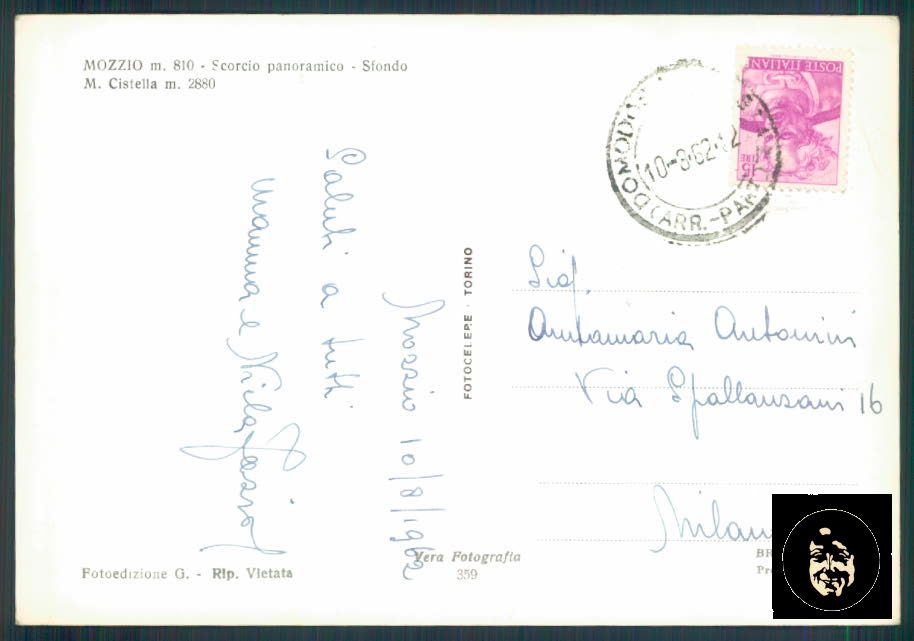 MOZZIO m. 810 - Scorcio panoramico - Sfondo
M. Cistella m. 2880
Mozzio 10/8/1962
Saluti a tutti
mamma e
FOTOCELERE - TORINO
POSTE ITALIAN
LIRE 15
DOMODO
10-8-62-12
(ARR.-PAR
Sig.
Annamaria Antonini
Via Spallanzani 16
Milan
Fotoedizione G. - Rip. Vietata
Vera Fotografia
359
BR
Pr